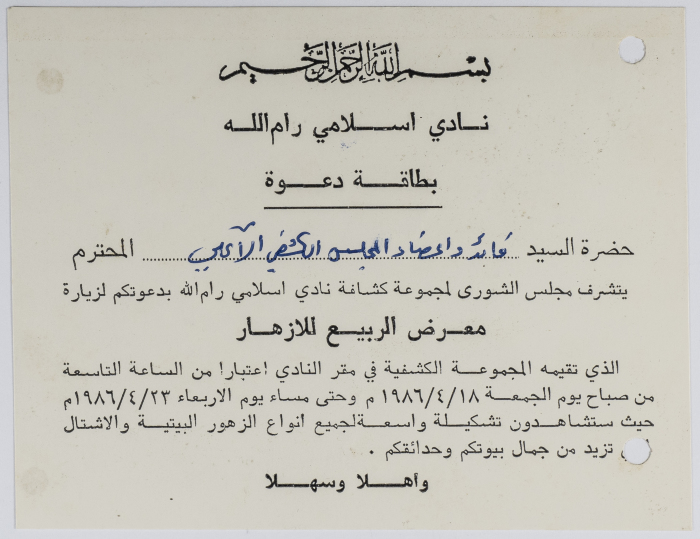 بسم الله الرحمن الرحيم
نادي اسلامي رام الله
بطاقة دعوة
حضرة السيد قائد واعضاء المجلس الكشفي الأعلى المحترم
يتشرف مجلس الشورى لمجموعة كشافة نادي اسلامي رام الله بدعوتكم لزيارة
معرض الربيع للازهار
الذي تقيمه المجموعة الكشفية في مقر النادي اعتبارا من الساعة التاسعة
من صباح يوم الجمعة ١٩٨٦/٤/١٨ م وحتى مساء يوم الاربعاء ١٩٨٦/٤/٢٣م
حيث ستشاهدون تشكيلة واسعة لجميع انواع الزهور البيتية والاشتال
تزيد من جمال بيوتكم وحدائقكم .
وأهلا وسهلا